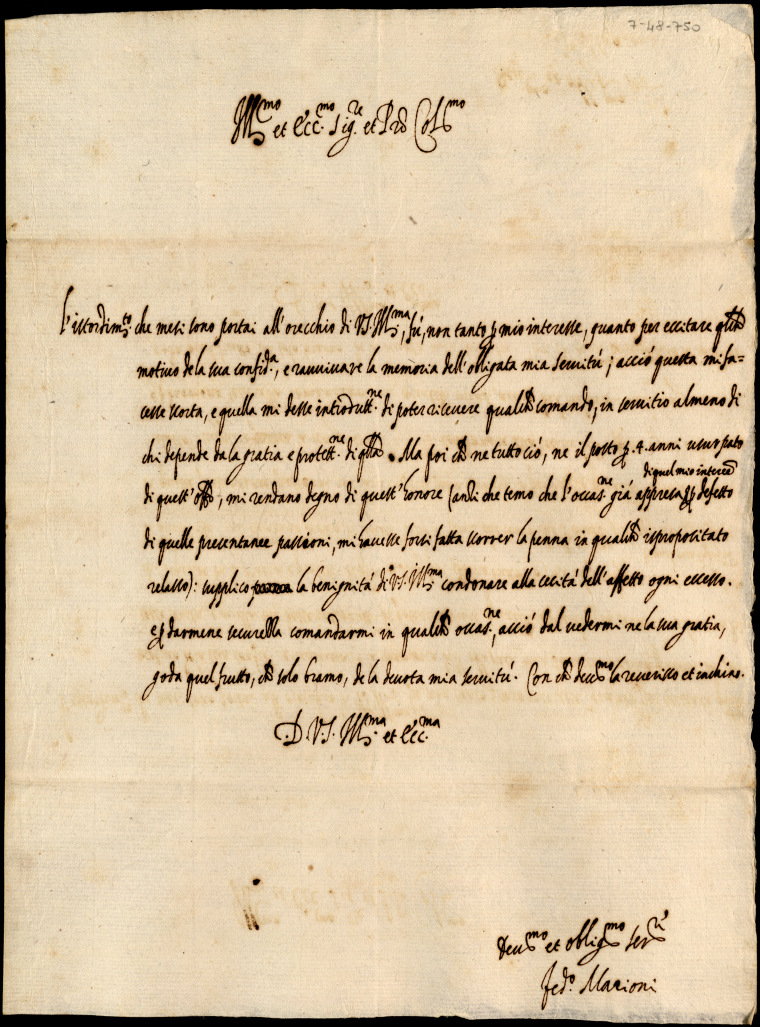 7-48-750
Ill.mo et Ecc.mo Sig.re et Prõ Col.mo
che mesi sono portai all'orecchio di V.S. Ill.ma, fú, non tanto ꝑ mio interesse, quanto per eccitare
motivo de la sua confid.a, e ravvivare la memoria dell'obligata mia servitú; acció questa mi fa=
cesse scorta, e quella mi desse introdutt.ne di poter ricevere qualch̃ comando, in servitio almeno di
chi depende da la gratia e protett.ne di . Ma poi ch̃ ne tutto ció, ne il posto ꝑ 4. anni usurpato
di quel mio interesse
di quest'off.o, mi rendano degno di quest'honore (anzi che temo che l'occas.ne giá appresa ꝑ difetto
di quelle presentanee passioni, mi havesse forsi fatta scorrer la penna in qualch̃ ispropositato
relasso): supplico la benignitá di V.S. Ill.ma condonare alla cecitá dell'affetto ogni eccesso.
e ꝑ darmene comandarmi in qualch̃ occas.ne, acció dal vedermi ne la sua gratia,
goda quel frutto, ch̃ solo bramo, de la devota mia servitú. Con ch̃ dev.mo la reverisco et inchino.
D. V. S. Ill.ma et Ecc.ma
Dev.mo et oblig.mo ser.re
Fed.o Marioni